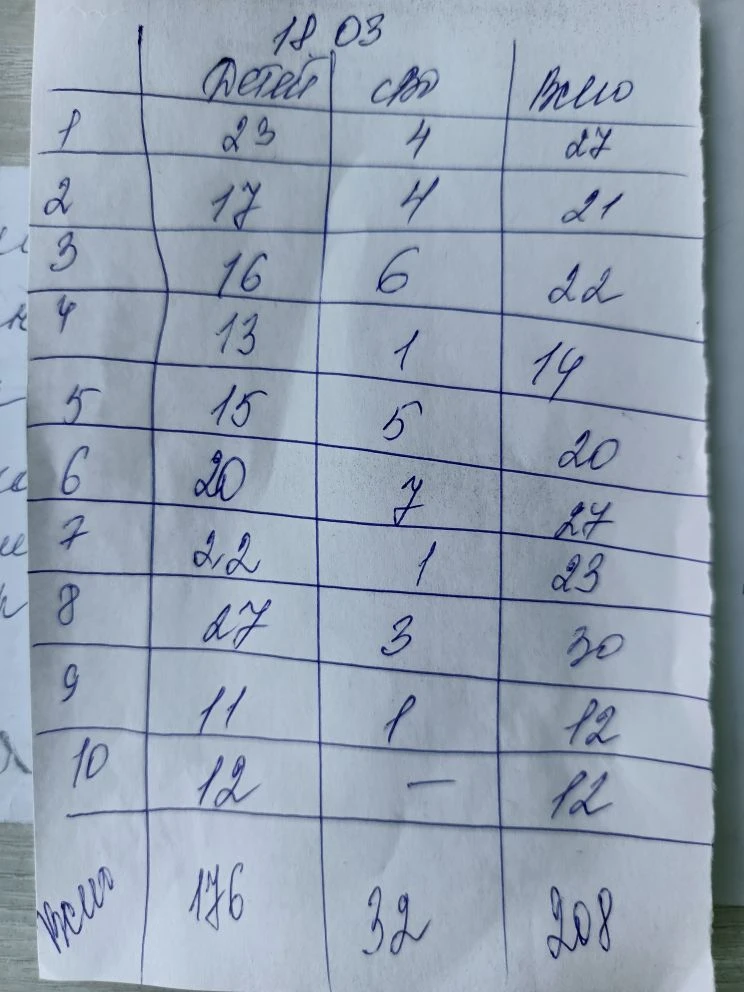 18 03
Детей сво Всего
1 23 4 27
2 17 4 21
3 16 6 22
4 13 1 14
5 15 5 20
6 20 7 27
7 22 1 23
8 27 3 30
9 11 1 12
10 12 — 12
Всего 176 32 208